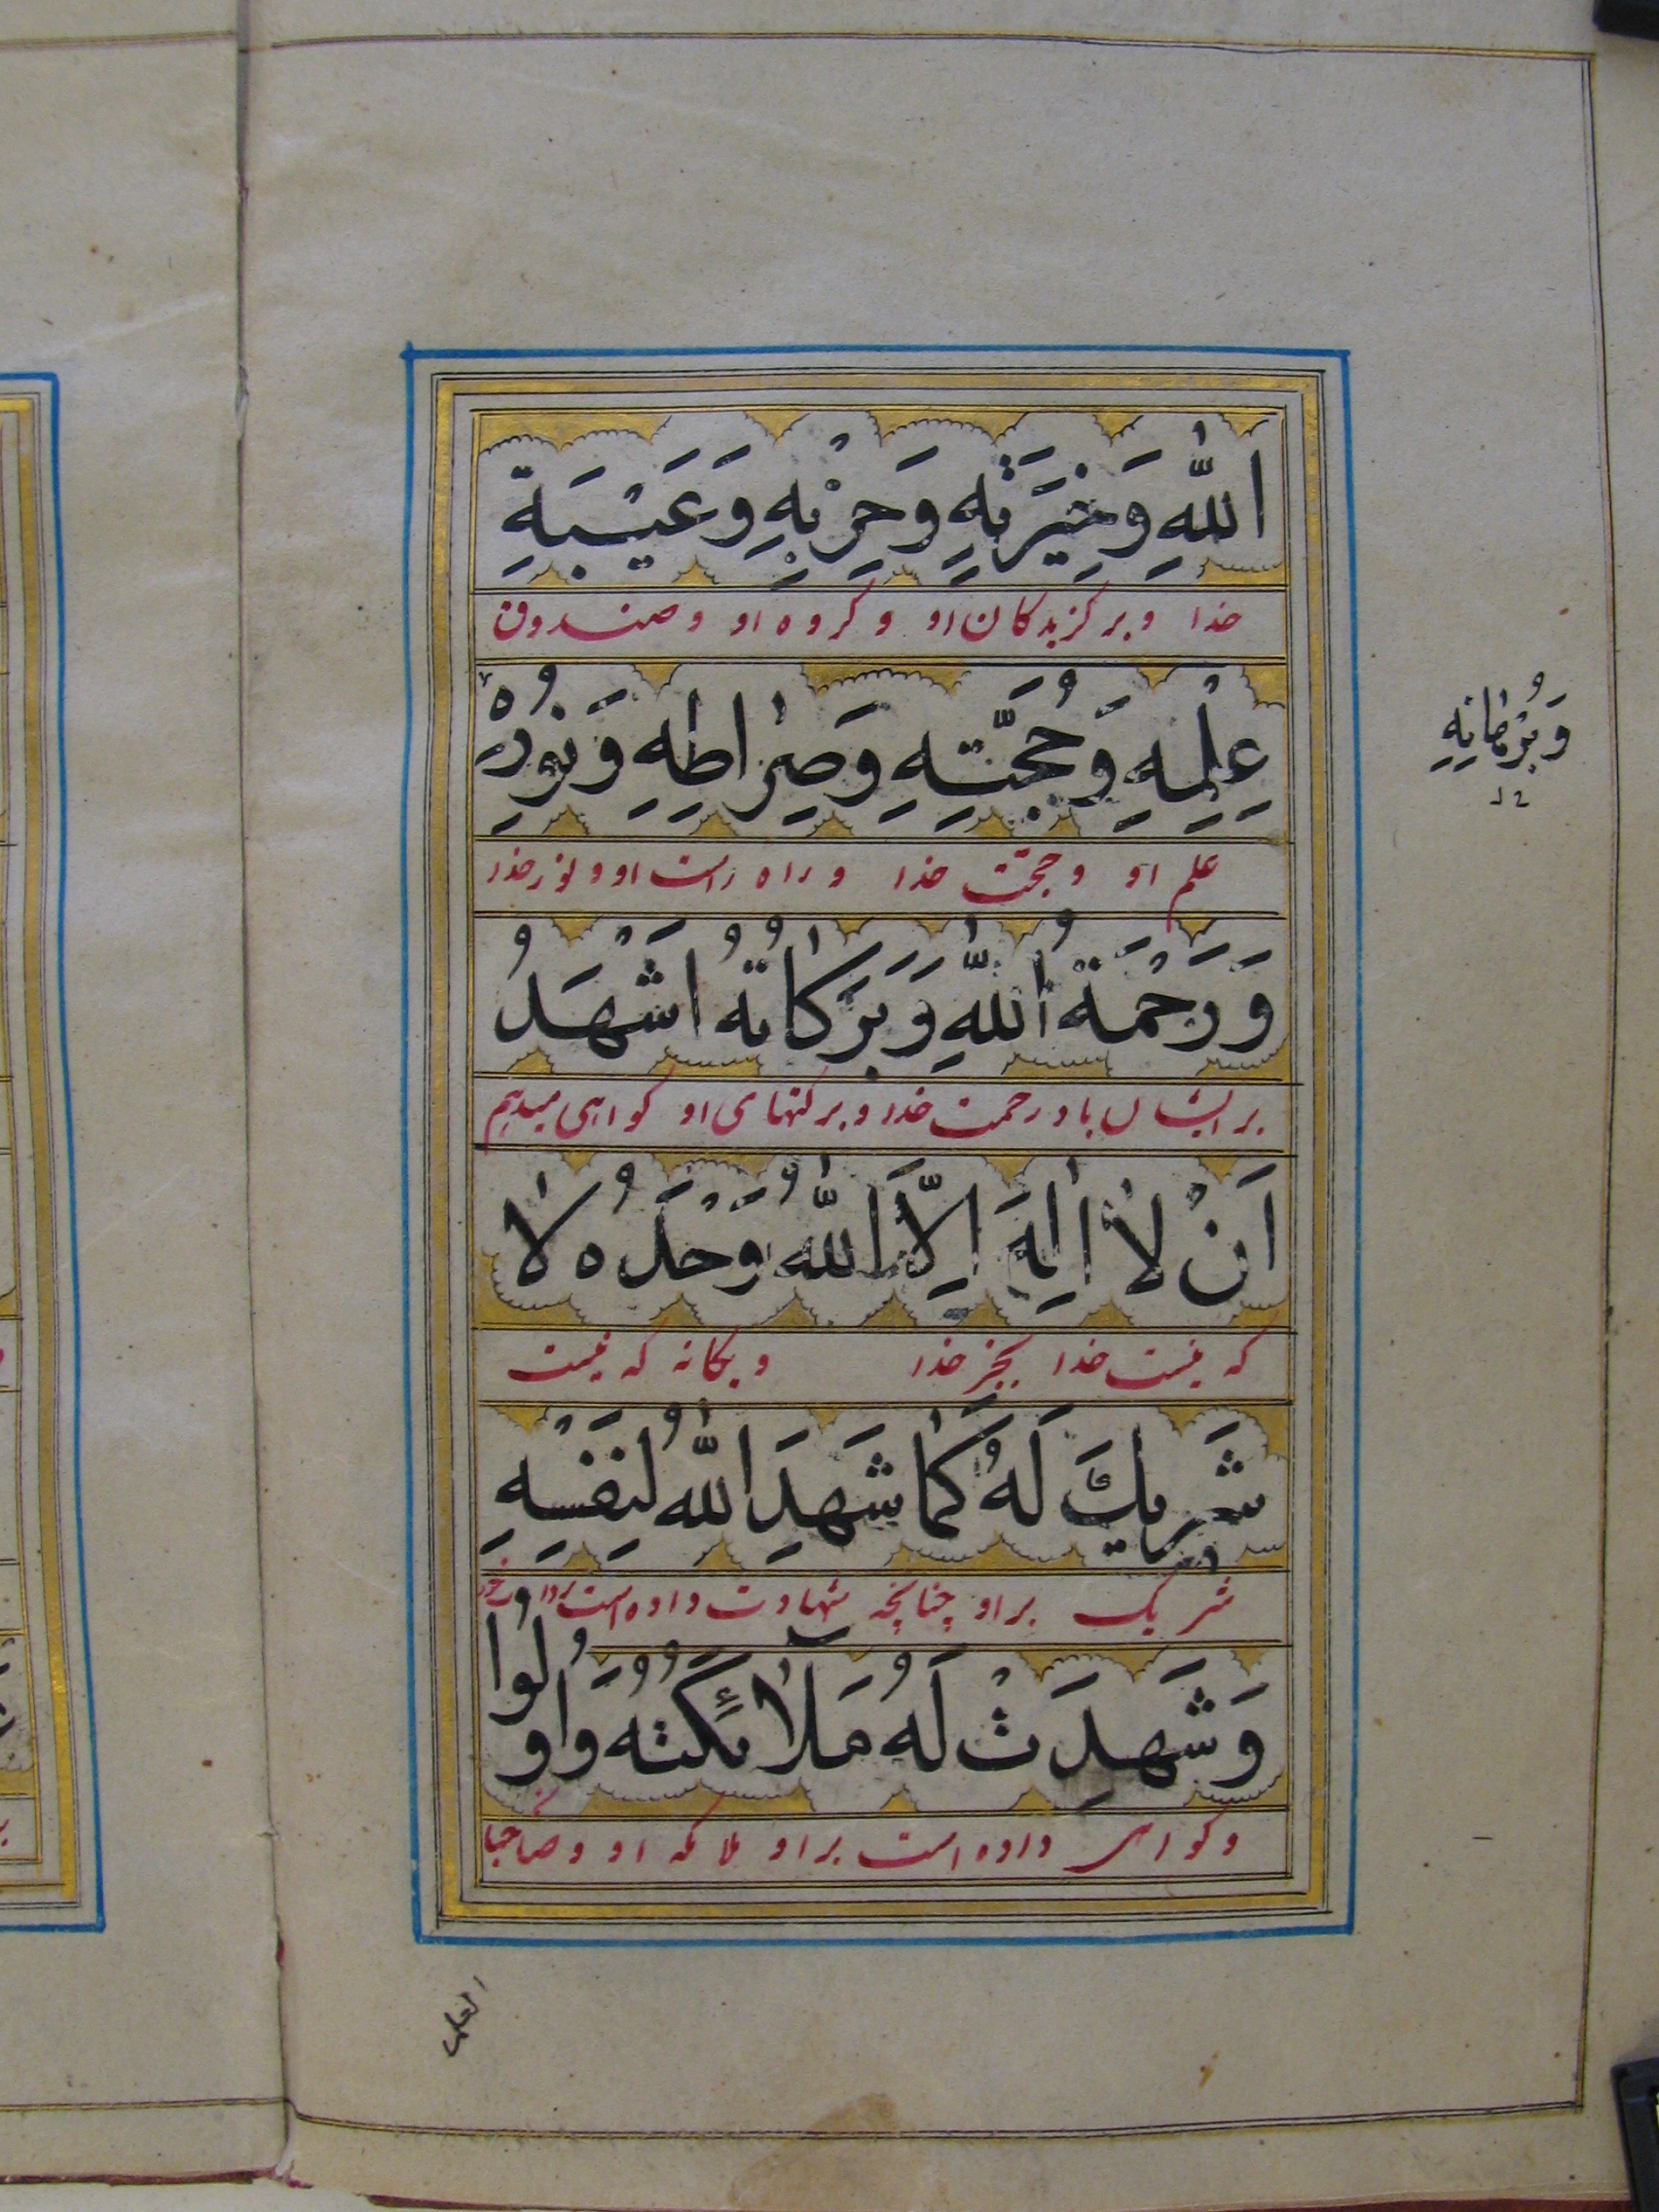 اللّٰهِ وَخِيَرَتِهِ وَحِزْبِهِ وَعَيْبَةِ
خدا و برگزیدکان او و گروه او و صندوق
عِلْمِهِ وَحُجَّتِهِ وَصِرٰاطِهِ وَنُورِهِ
وَبُرْهَانِهِ
علم او و حجّت خدا و راه راست او و نور خدا
وَرَحْمَةُ اللّٰهِ وَبَرَكٰاتُهُ اَشْهَدُ
بر ایشان باد رحمت خدا و برکتهای او کواهی میدهم
اَنْ لاٰ اِلٰهَ اِلاَّ اللّٰهُ وَحْدَهُ لاٰ
که نیست خدا بجز خدا و یکانه که نیست
شَرِيكَ لَهُ كَمٰا شَهِدَ اللّٰهُ لِنَفْسِهِ
شریک بر او چنانچه شهادت داده است
وَشَهِدَتْ لَهُ مَلاٰئِكَتُهُ وَاُولُوا
و کواهی داده است بر او ملائکه او و صاحبان
العلم